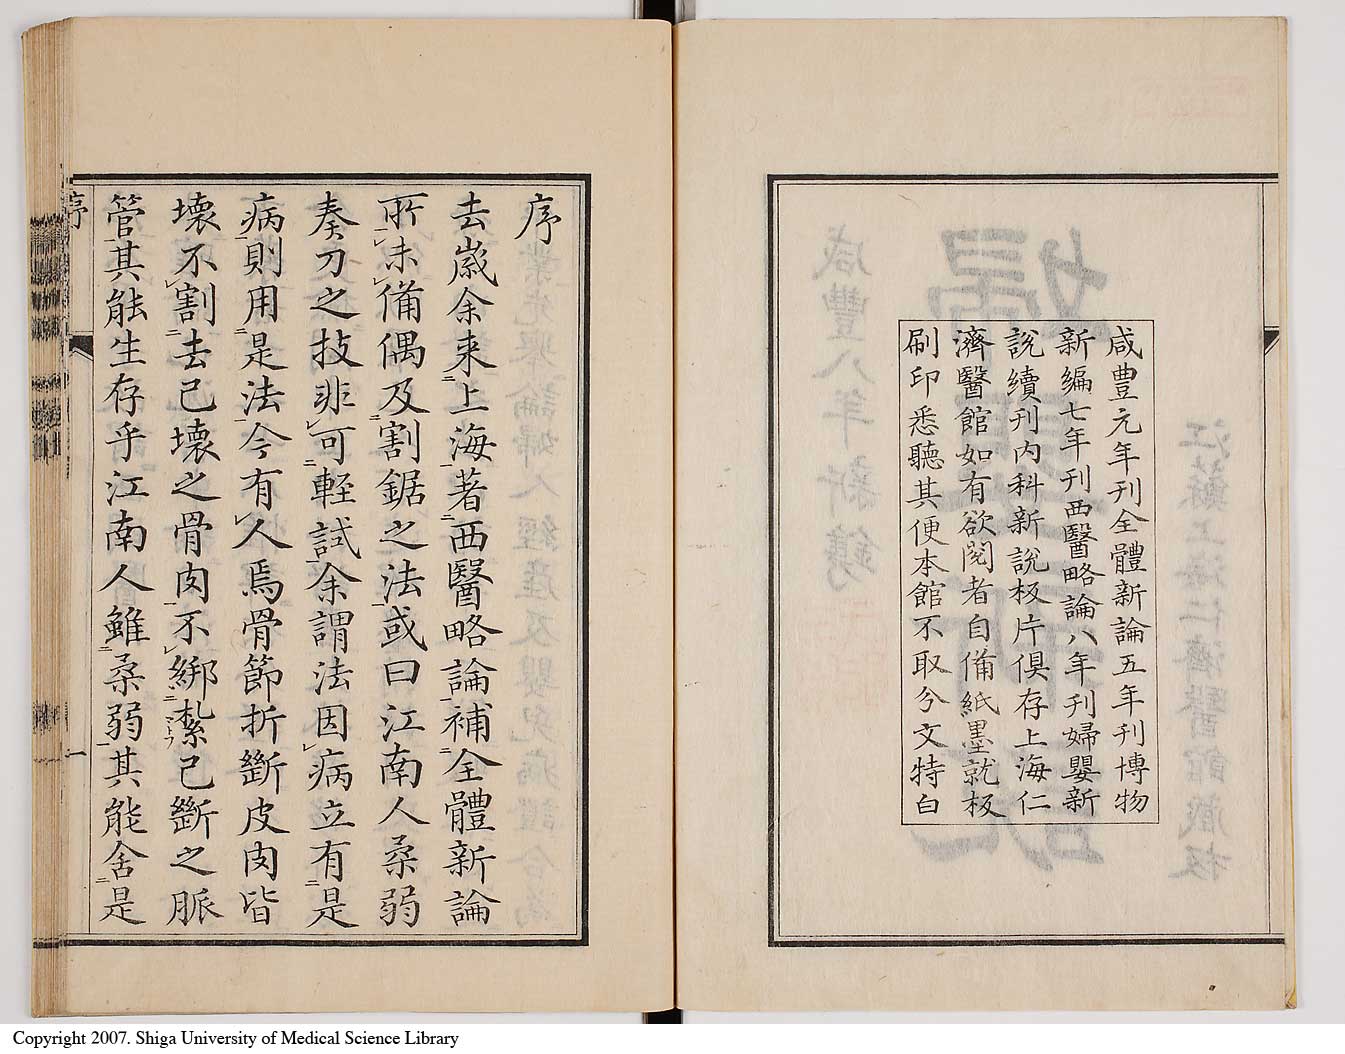 咸豊元年刊全體新論五年刊博物
新編七年刊西醫略論八年刊婦嬰新
說續刊內科新說板片俱存上海仁
濟醫館如有欲閱者自備紙墨就板
刷印悉聽其便本館不取分文特白
序
去嵗余来上海著西醫略論補全體新論
所未備偶及割鋸之法或曰江南人柔弱
奏刀之技非可輕試余謂法因病立有是
病則用是法今有人焉骨節折斷皮肉皆
壞不割去已壞之骨肉不綁紮已斷之脈
管其能生存乎江南人雖柔弱其能舍是
序
一
Copyright 2007. Shiga University of Medical Science Library